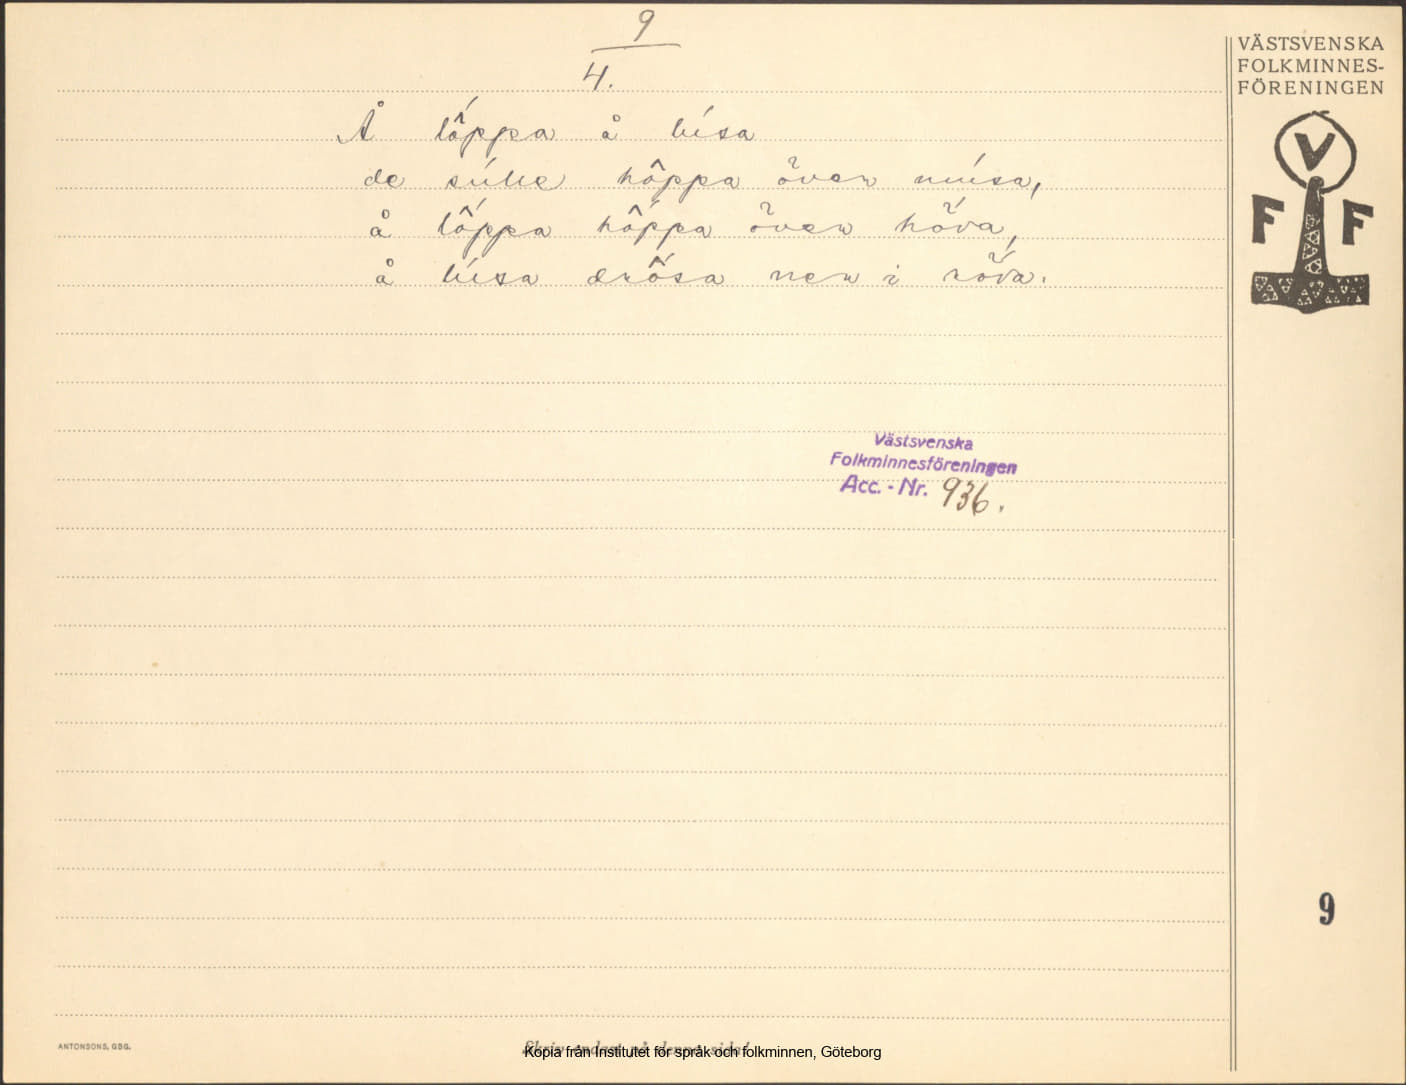 9
4.
Å lôppa å lúsa
de súlle hôppa över músa,
å lôppa hôppa över höva,
å lúsa drôsa ner i röva.
VÄSTSVENSKA
FOLKMINNES-
FÖRENINGEN
V
F F
Västsvenska
Folkminnesföreningen
Acc. - Nr. 936.
9
ANTONSONS, GBG.
Skriv endast på denna sida!
Kopia från Institutet för språk och folkminnen, Göteborg